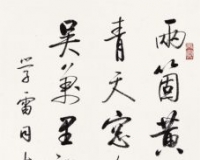 兩箇黃
青天窓
吴萬里
学雷同